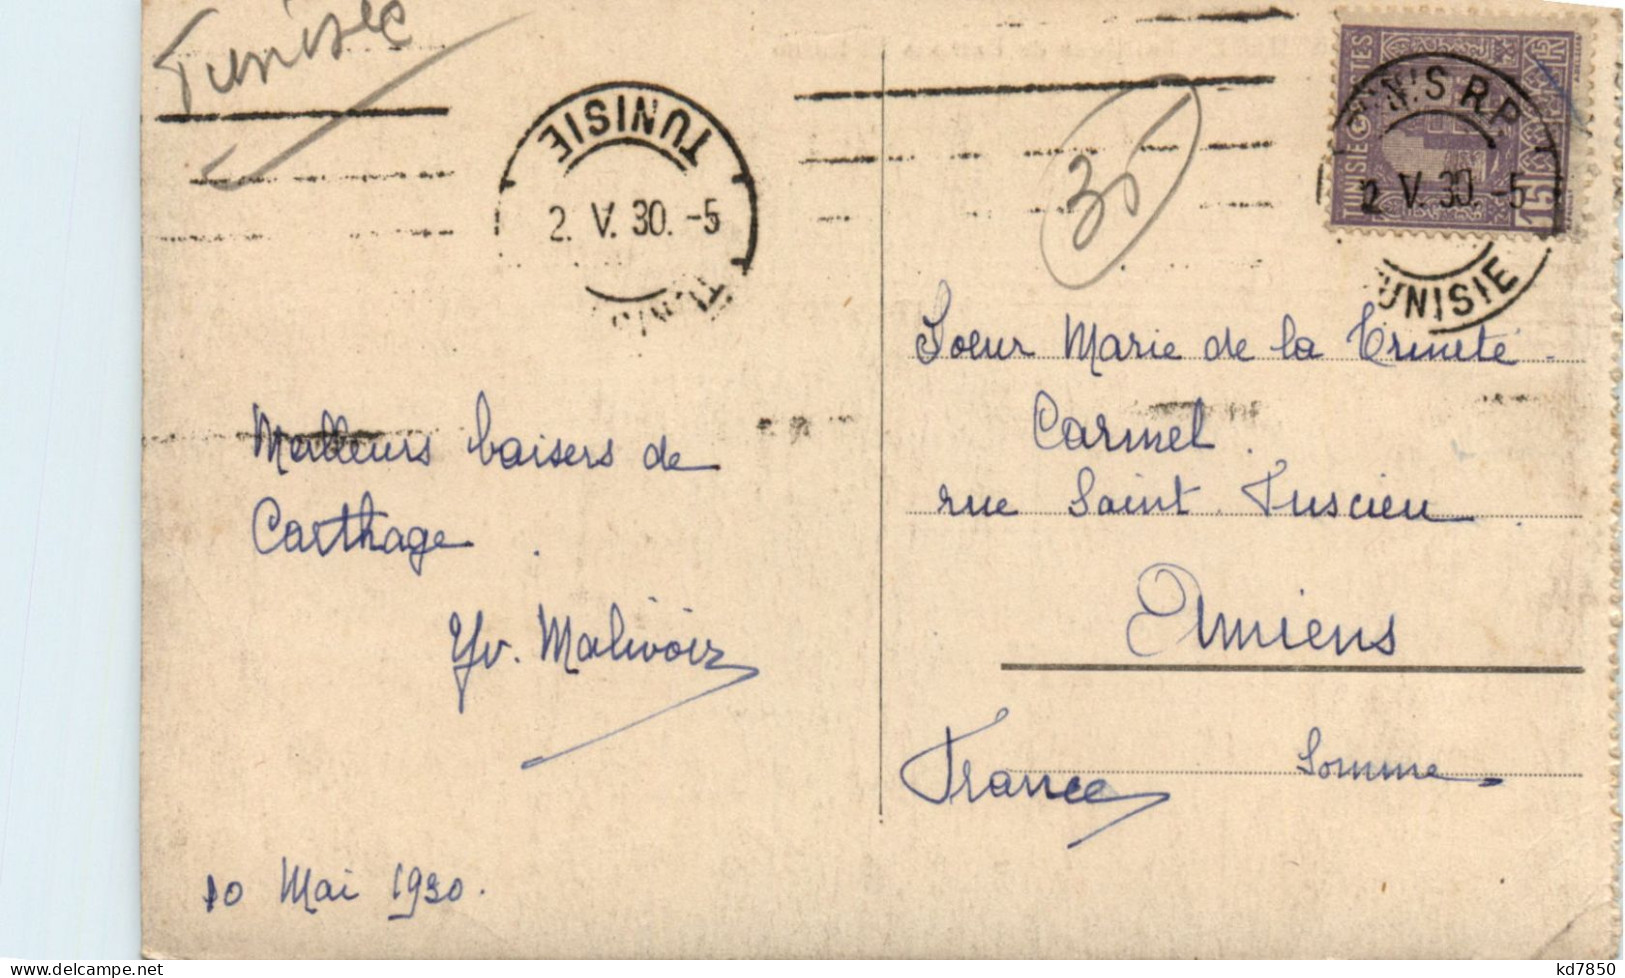 Tunisie
TUNISIE
2. V. 30. -5
35
TUNIS R.P.
2 V. 30. -5
TUNISIE
TUNISIE POSTES
15
Soeur Marie de la Trinité
Carmel.
rue Saint Fuscien
Amiens
Somme
France
Meilleurs baisers de
Carthage.
Yv. Malivoir
10 Mai 1930.
kd7850